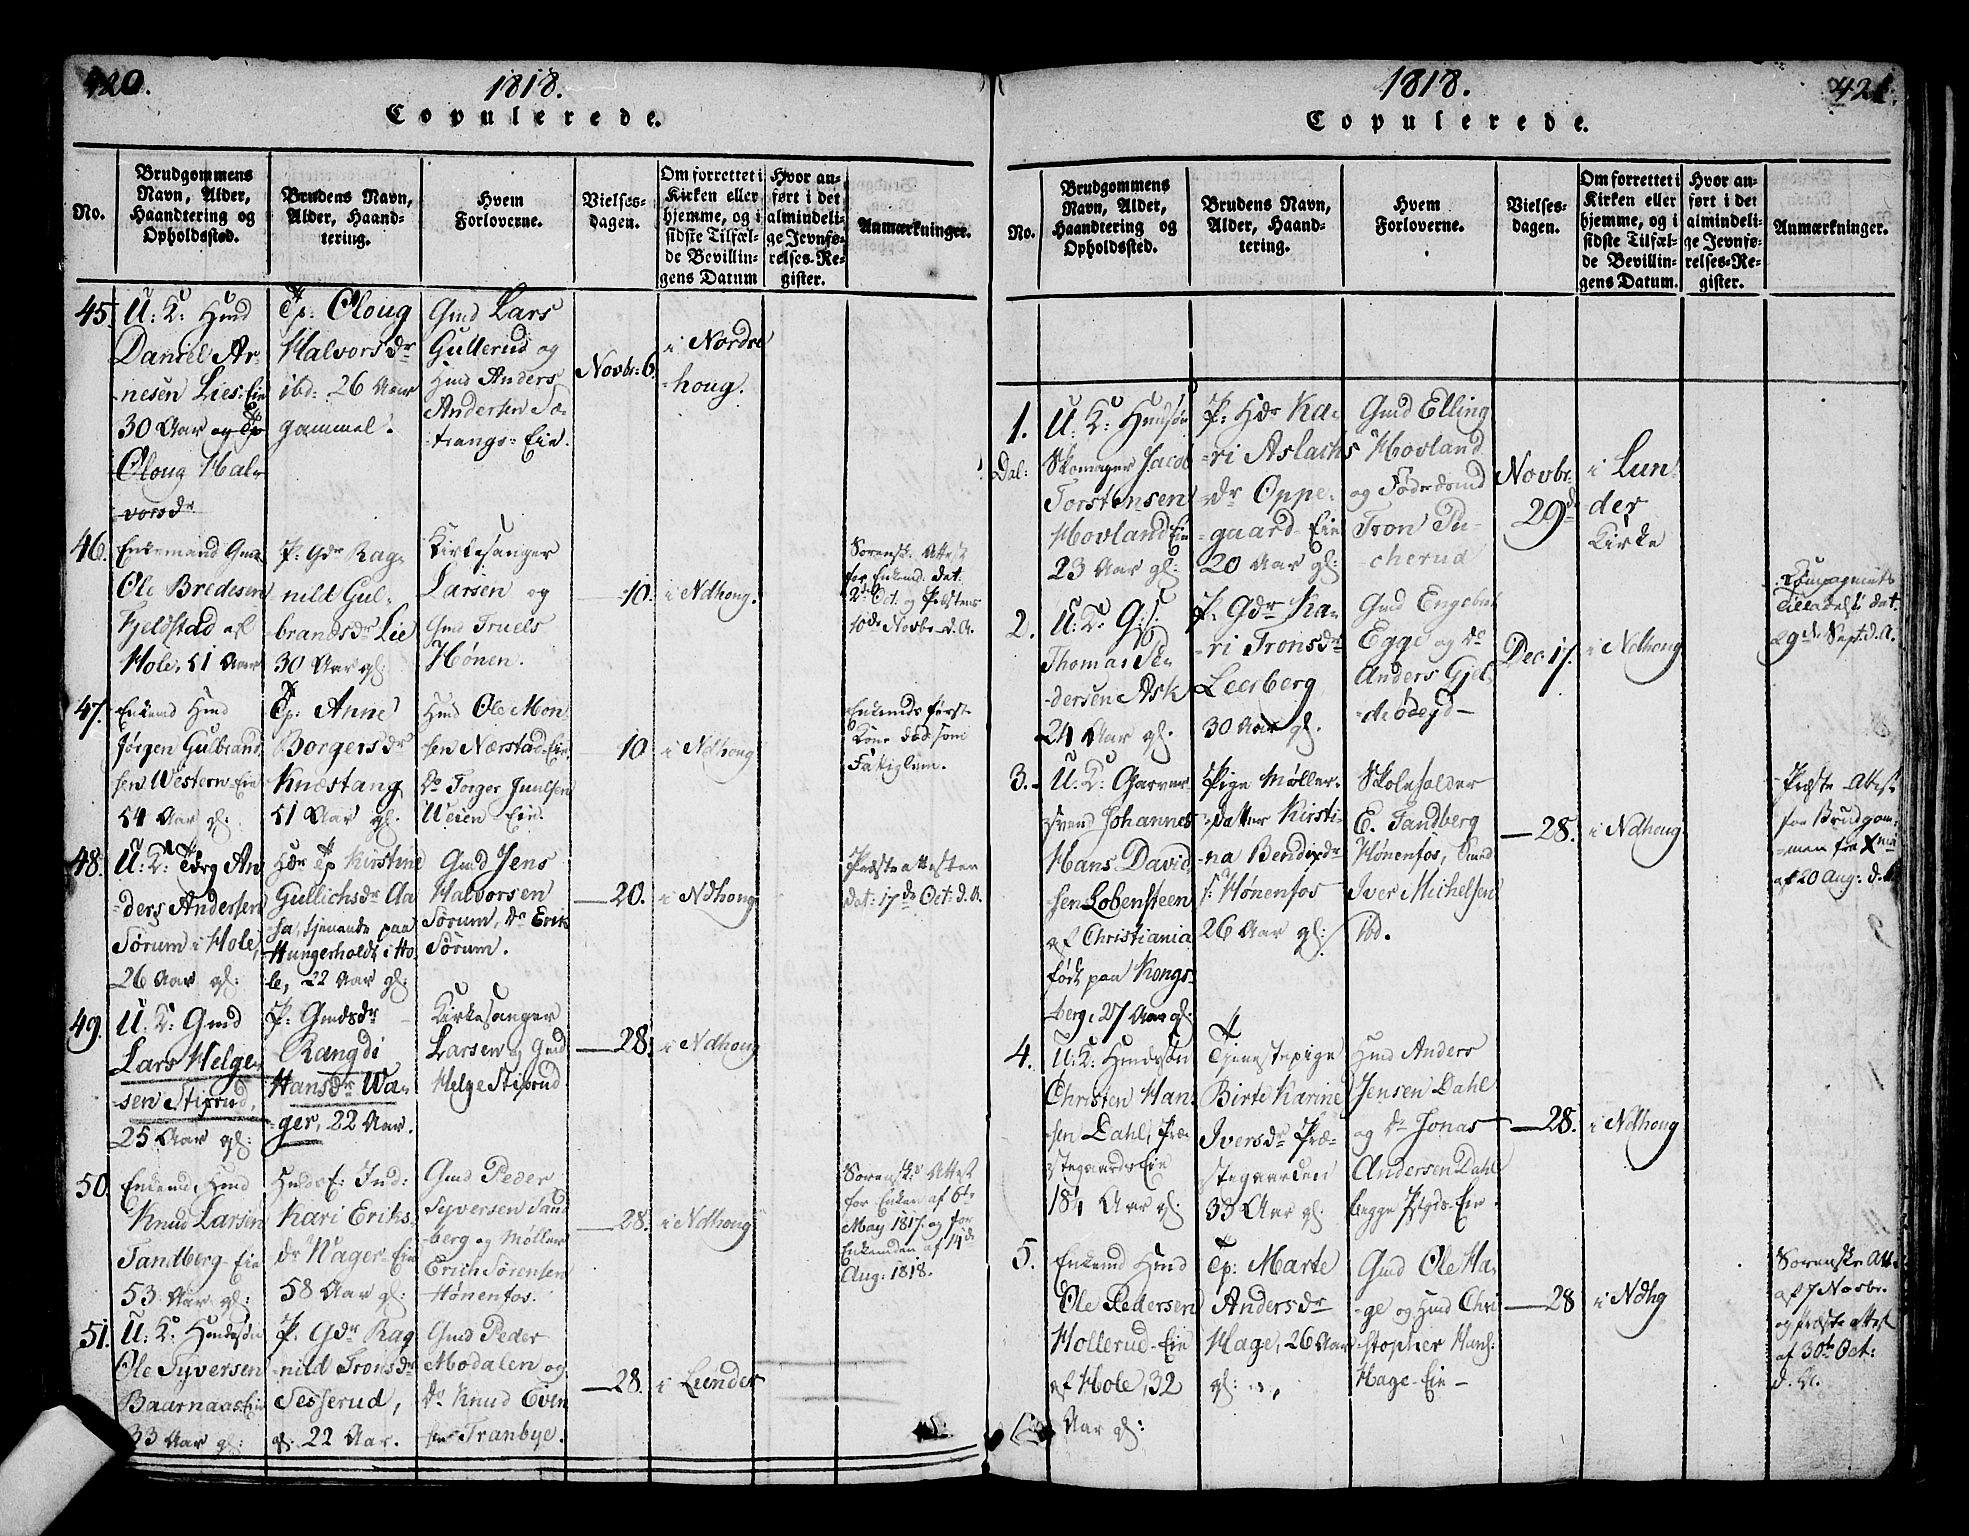 420.
1818.
Copulerede.
No.
Brudgommens
Navn, Alder,
Haandtering og
Opholdssted.
Brudens Navn,
Alder, Haand-
tering.
Hvem
Forloverne.
Vielses-
dagen.
Om forrettet i
Kirken eller
hjemme, og i
sidste Tilfæl-
de Bevillin-
gens Datum
Hvor an-
ført i det
almindeli-
ge Jevnfø-
relses-Re-
gister.
Anmærkninger.
45.
U: K: Hmd
Daniel Ar-
nesen Lies-Eie
30 Aar og Tp
Oloug Hal-
vorsdr
Tp: Oloug
Halvorsdr
ibd: 26 Aar
gammel.
Gmd Lars
Gullerud og
Hmd Anders
Andersen Sæ-
trangs-Eie.
Novbr: 6.
i Nordre
houg.
46.
Enkemand Gmd
Ole Bredesen
Fjeldstad af
Hole, 51 Aar
P: Gdr Rag-
nild Gul-
brandsdr Lie
30 Aar gl:
Kirkesanger
Larsen og
Gmd Truels
Hønen.
10.
i Ndhoug.
Sorensk: Attest
for Enkemd: dat:
2den Oct: og Præstens
10de Novbr d. A.
47.
Enkemd Hmd
Jørgen Gulbrand-
sen Western-Eie
54 Aar gl:
Tp: Anne
Borgersdr
Knæstang
51 Aar gl.
Hmd Ole Mon-
sen Nærstad-Eie
do Torger Juulsen
Veien Eie.
10
i Ndhoug
Enkemds første
Kone død som
Fattiglem.
48.
U: K: Tørg An-
ders Andersen
Sørum i Hole,
26 Aar gl:
Hdr Tp Kirstine
Gullichsdr Aa-
sa, tjenende paa
Hungerholdt i Ho-
le, 22 Aar gl:
Gmd Jens
Halvorsen
Sørum, do Erik
Sørum.
20.
i Ndhoug
Præsteattester
dat: 17de Oct: d. A.
49.
U: K: Gmd
Lars Helge-
sen Stixrud,
25 Aar gl:
P: Gmdsdr
Rangdi
Hansdr Wa-
ger, 22 Aar.
Kirkesanger
Larsen og Gmd
Helge Stixrud
28.
i Ndhoug
50.
Enkemd, Hmd
Knud Larsen
Tandberg-Eie
53 Aar gl:
Kari Eriks-
dr Wager-Eie
58 Aar gl:
Gmd Peder
Syversen Tand-
berg og Møller
Erich Sørensen
Hønenfos.
28.
i Ndhoug
Sorensk: Attest
for Enken af 6te
May 1817 og for
Enkemden af 14de
Aug: 1818.
51.
U: K: Hmdssøn
Ole Syversen
Baarnaas-Eie
33 Aar gl:
P. Gdr Rag-
nild Tronsdr
Sesserud,
gl: 22 Aar.
Gmd Peder
Modalen og
do Knud Even-
sen Tranbye.
28.
i Lunder
1818.
421.
Copulerede.
No.
Brudgommens
Navn, Alder,
Haandtering og
Opholdssted.
Brudens Navn,
Alder, Haand-
tering.
Hvem
Forloverne.
Vielses-
dagen.
Om forrettet i
Kirken eller
hjemme, og i
sidste Tilfæl-
de Bevillin-
gens Datum.
Hvor an-
ført i det
almindeli-
ge Jevnfø-
relses-Re-
gister.
Anmærkninger.
1.
Dal:
U: K: Hmdsøn
Skomager Jacob
Torstensen
Hovland Eie
23 Aar gl:
P: Hdr Ka-
ri Aslachs
dr Oppe-
gaard-Eie
20 Aar gl:
Gmd Elling
Hovland
og Føderaadsmd
Tron Tu-
cherud
Novbr:
29de
i Lun-
der
Kirke
2.
U: K: G: S:
Thomas Pe-
dersen Ask
24 Aar gl.
P: Gdr Ka-
ri Tronsdr
Leerberg
30 Aar gl.
Gmd Engebret
Egge og do
Anders Gjel-
Dec: 17.
i Ndhoug
Compagniets
Tilladelse dat
29de Sept: d. A.
3.
U: K: Garver-
svend Johannes
Hans David-
sen Lobensteen
af Christiania
født paa Kongs-
berg, 27 Aar gl:
Pige Møller-
datter Kirsti-
na Bendixdr
f: Hønenfos
26 Aar gl:
Skoleholder
E. Tandberg
Hønenfos, Smed
Iver Michelsen
ibd.
28.
i Ndhoug
Præste Attest
for Brudgom-
men fra Xnia
af 20 Aug: d. A.
4.
U: K: Hmdssøn
Christen Han-
sen Dahl, Præ-
stegaards-Eie
18½ Aar gl:
Tjenestepige
Birte Karine
Iversdr Præ-
stegaarden
33 Aar gl.
Hmd Anders
Jensen Dahl
og do Jonas
Andersen Dahl
begge Pgds-Eie.
28.
i Ndhoug
5.
Enkemd Hmd
Ole Pedersen
Hollerud-Eie
af Hole, 32
Aar gl:
Tp: Marte
Andersdr
Hage, 26 Aar
gl:
Gmd Ole Ha-
ge og Hmd Chri-
stopher Hans:
Hage-Eie
28
i Ndhg
Sorenskr Att:
af 7 Novbr.
og Præsteattest
af 30te Oct:
d. A.